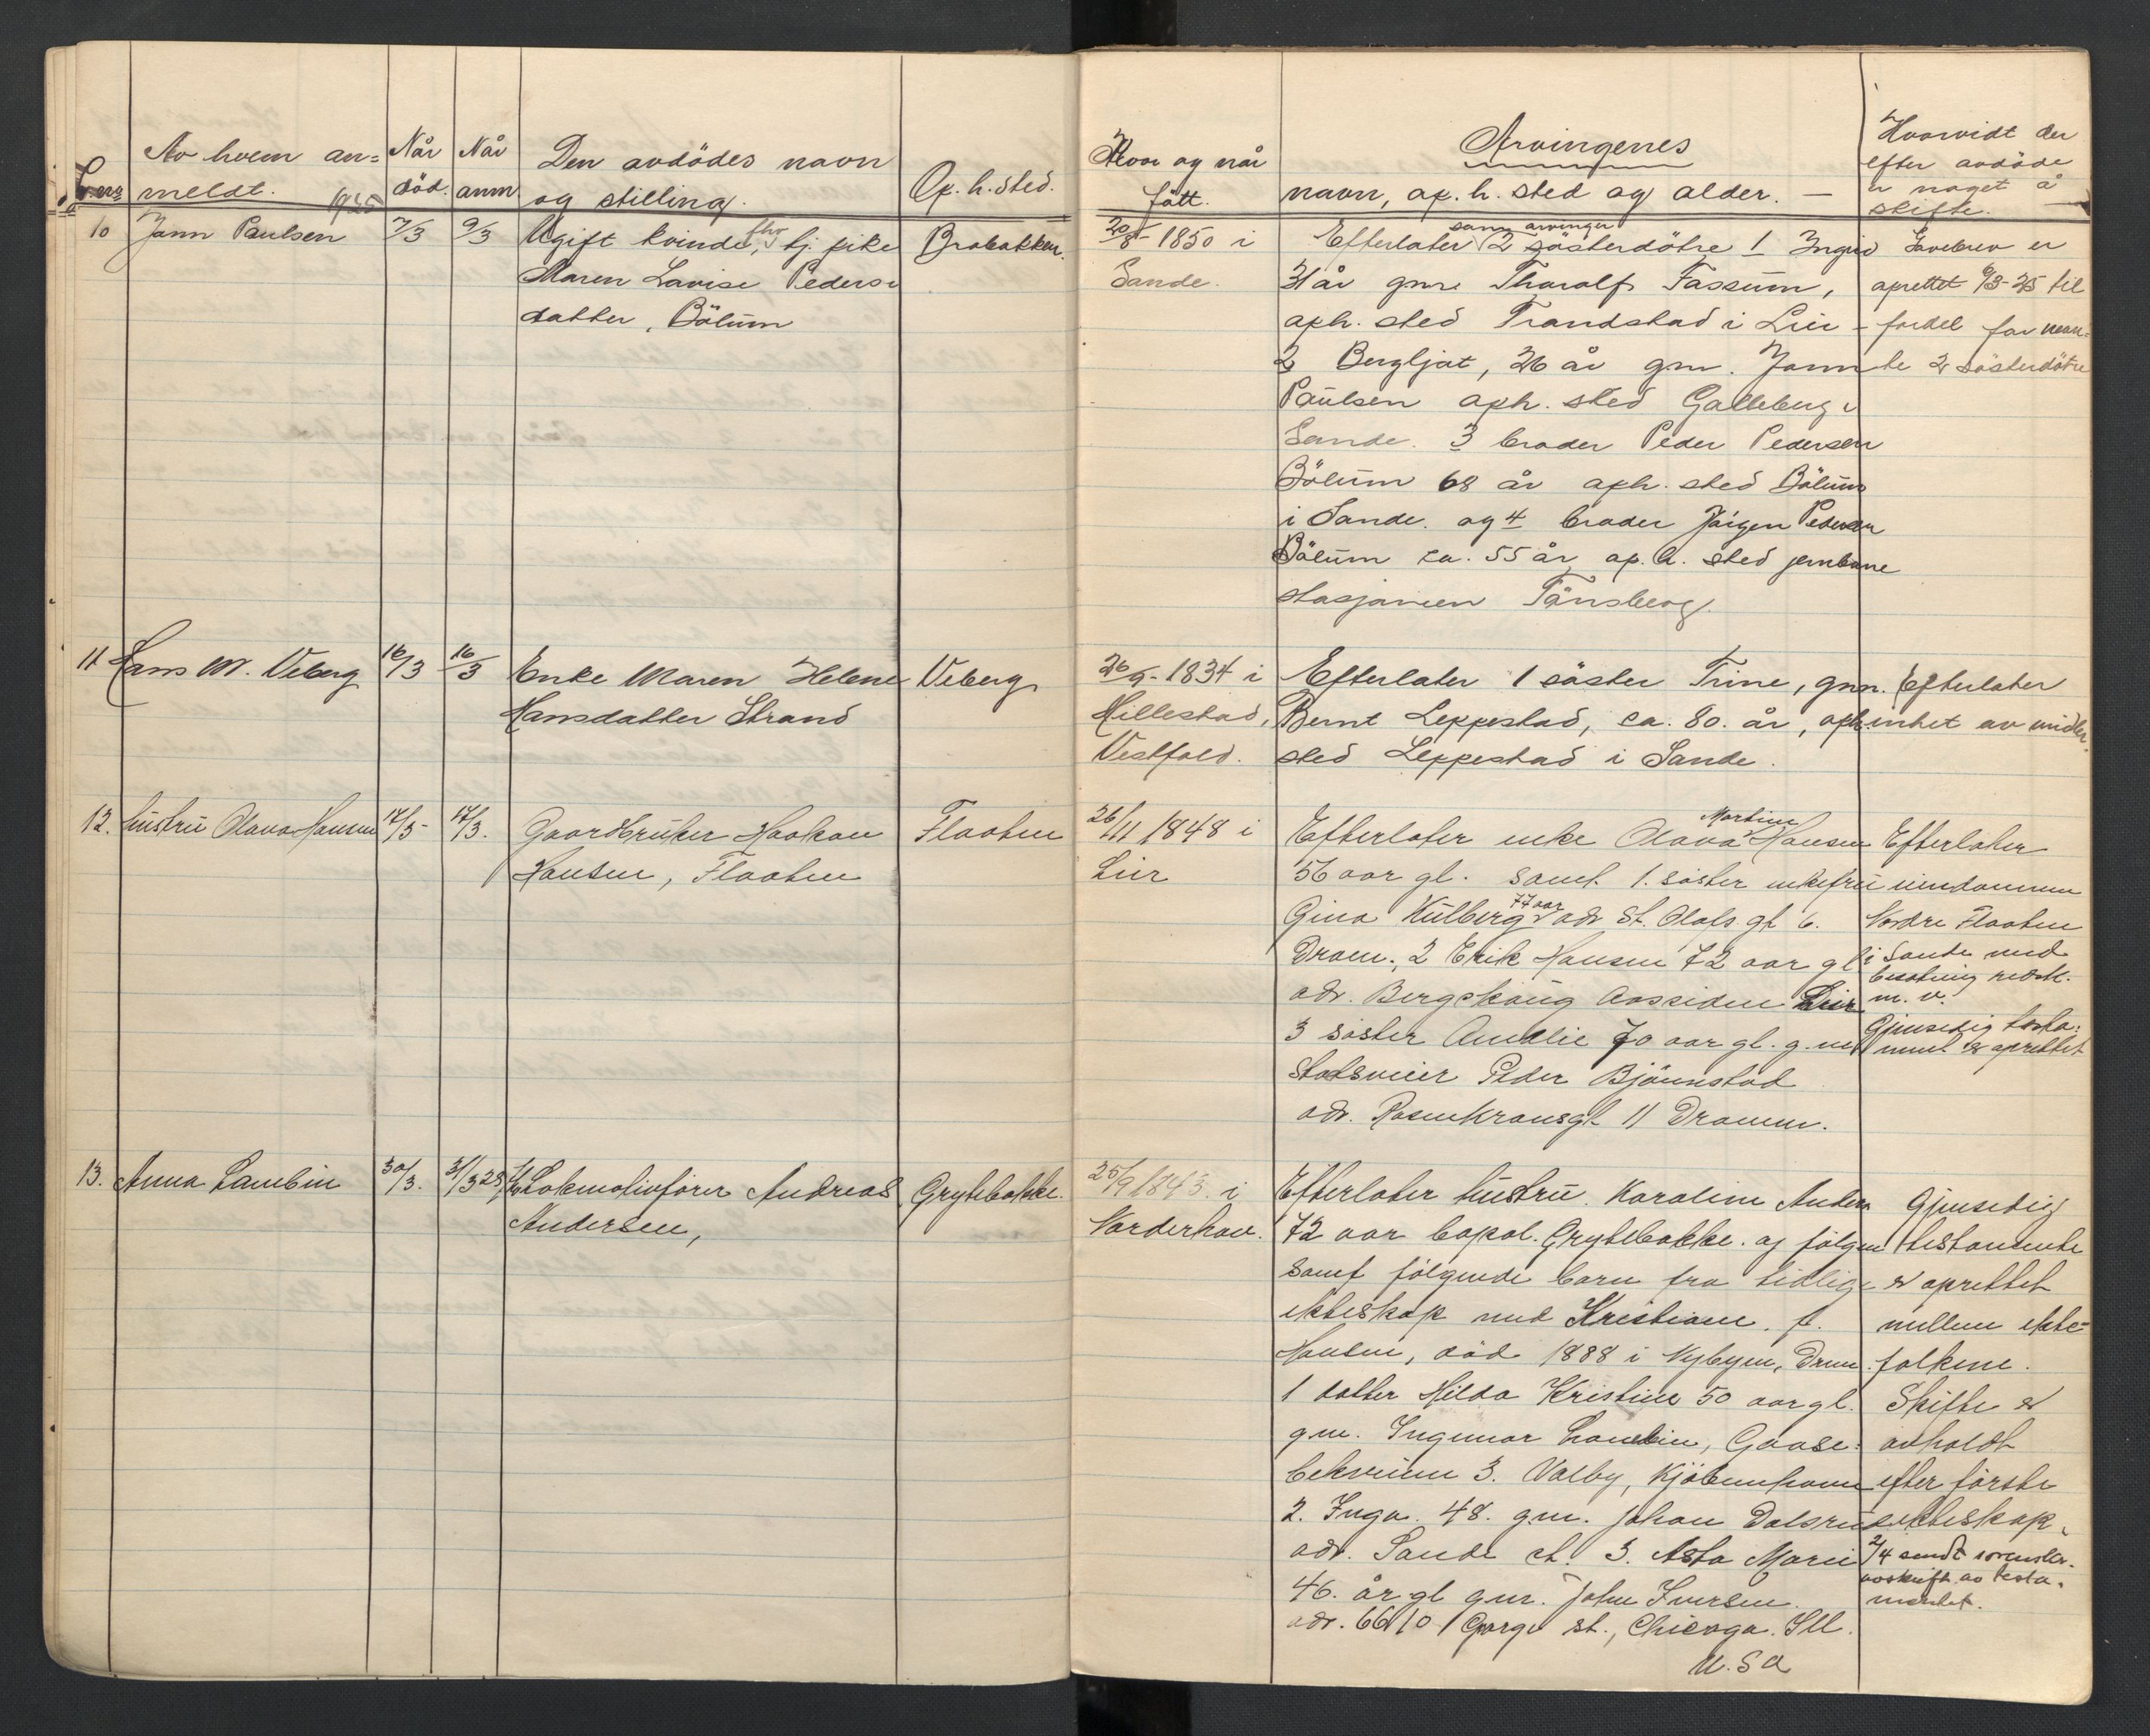 L. nr
Av hvem an=
meldt. 1925
Når
död.
Når
anm.
Den avdödes navn
og stilling.
Op. h. sted.
Hvor og når
fött.
Arvingenes
navn, op. h. sted og alder. —
Hvorvidt der
efter avdöde
er noget å
skifte.
10
Jonn Paulsen
7/3
9/3
Ugift kvinde, fhv tj. pike
Maren Lovise Peders=
datter, Bölum
Brobakken.
20/8-1850 i
Sande.
Efterlater som arvinger 2 sösterdötre 1 Ingrid
31 år gm. Thoralf Fossum,
oph. sted Trandstad i Lier -
2 Bergljot, 26 år gm. Jonn
Paulsen oph. sted Galleberg i
Sande. 3 broder Peder Pedersen
Bölum 68 år oph. sted Bölum
i Sande. og 4 broder Jörgen Pedersen
Bölum ca. 55 år, op. h. sted jernbane
stasjonen Tönsberg.
Gavebrev er
oprettet 6/3-25 til
fordel for nevn=
te 2 sösterdötre
11
Hans M. Veberg
16/3
16/3
Enke Maren Helene
Hansdatter Strand
Veberg
26/9-1834 i
Hillestad,
Vestfold.
Efterlater 1 söster Trine, gm.
Bernt Leppestad, ca. 80. år, oph.
sted Leppestad i Sande.
Efterlater
intet av midler.
12.
hustru Olava Hansen
17/3-
17/3.
Gaardbruker Haakon
Hansen, Flaaten
Flaaten
26/11 1848 i
Lier
Efterlater enke Olava Martine Hansen
56 aar gl. samt 1. söster enkefru
Gina Kulberg 77 aar adr St. Olafs gt 6.
Dram., 2 Erik Hansen 72 aar gl
adr. Bergskaug Aassiden Lier
3 söster Amalie 70 aar gl. g. med
Stadsveier Peder Björnstad
adr. Rosenkransgt 11 Drammen.
Efterlater
eiendommen
Nordre Flaaten
i Sande med
besetning redsk.
m. v.
Gjensidig testa=
ment er oprettet
13.
Anna Lambin
30/3.
31/3 25
Lokomotivförer Andreas
Andersen,
Grytebakke.
25/9 1843. i
Norderhov.
Efterlater hustru Karoline Andersen
72 aar bopæl. Grytebakke. og følgen
samt følgende barn fra tidlige
ekteskap med Kristiane. f.
Hansen, död 1888 i Nybyen, Dram.
1 datter Hilda Kristine 50 aar gl.
gm. Ingemar Lambin, Gaase=
bekveien 3. Valby, Kjöbenhavn
2. Inga. 48. gm. Johan Dalsrud
adr. Sande st. 3. Asta Marie
46. år gl gm. John Iversen.
adr. 6610 Gorge st., Chicago. Ill.
U.S.A
Gjensidig
testamente
er oprettet
mellem ekte=
folkene.
Skifte er
avholdt
efter förste
ekteskap.
2/4 sendt sorenskr.
avskrift av testa=
mentet.